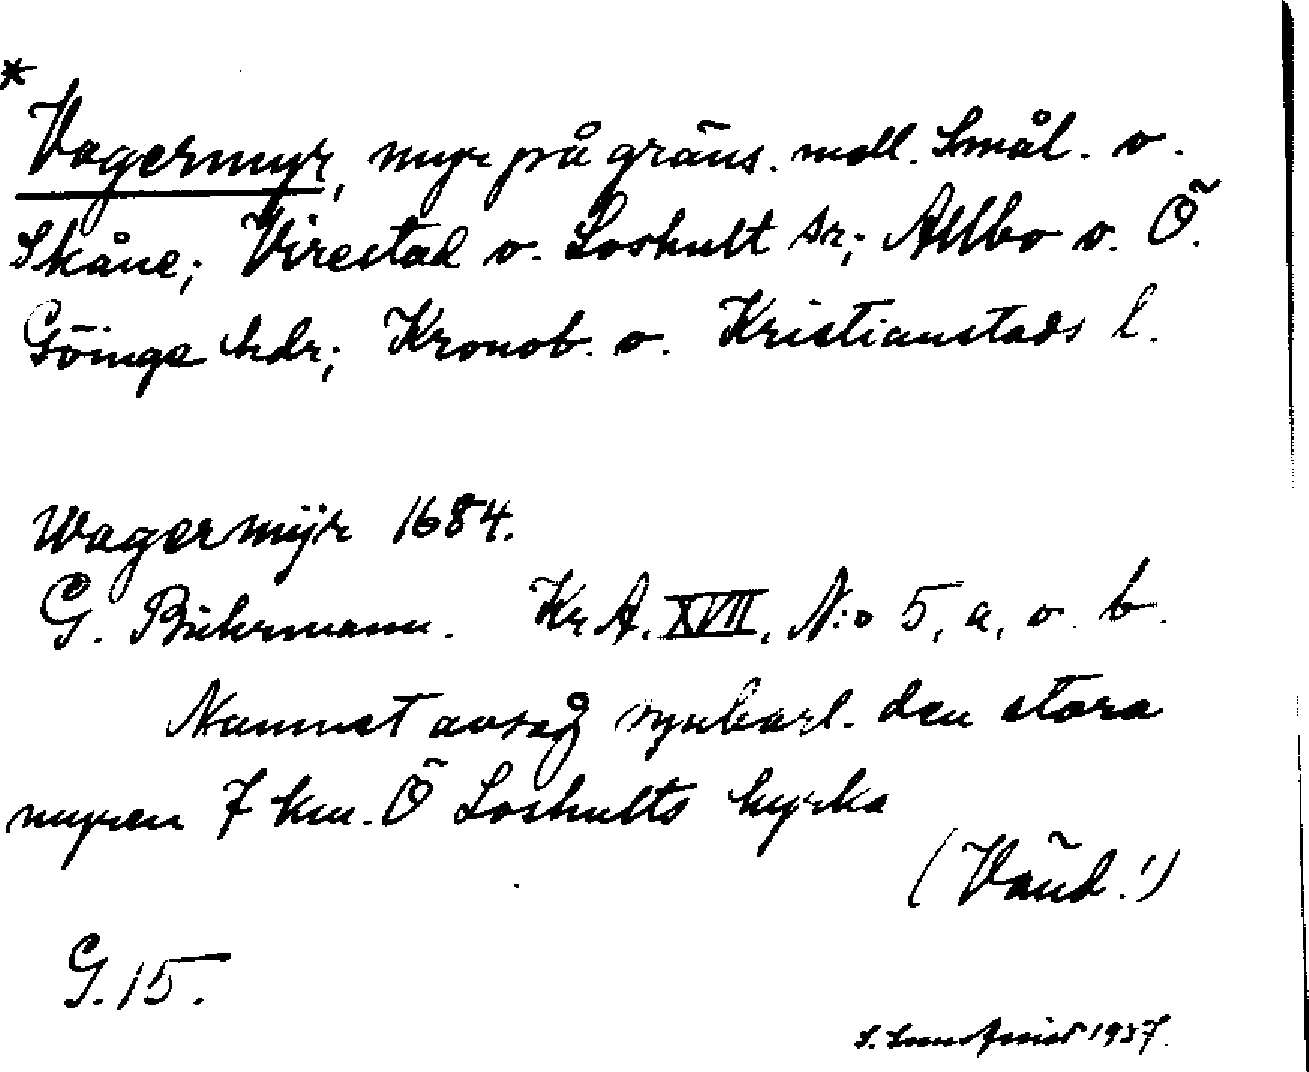 *
Vagermyr, myr på gräns. mell. Smål. o.
Skåne; Virestad o. Loshult sr; Allbo o. Ö.
Göinge hdr; Kronob. o. Kristianstads l.
Wagermÿr 1684.
G. Buhrmann. Kr A. XVII, N:o 5, a, o. b.
Namnet avsåg synbarl. den stora
myren 7 km. Ö Loshults kyrka
(Vänd!)
G. 15.
S. 1937.